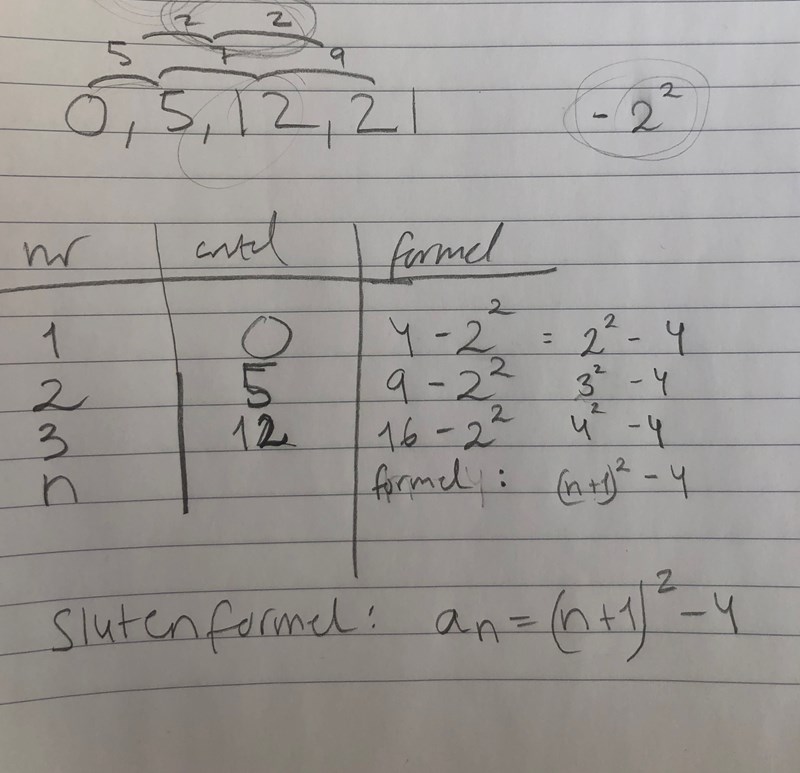 2 2
5 7 9
0, 5, 12, 21 - 2²
nr antal formel
1 0 4 - 2² = 2² - 4
2 5 9 - 2² 3² - 4
3 12 16 - 2² 4² - 4
n formel: (n+1)² - 4
Slutenformel: aₙ = (n+1)² - 4